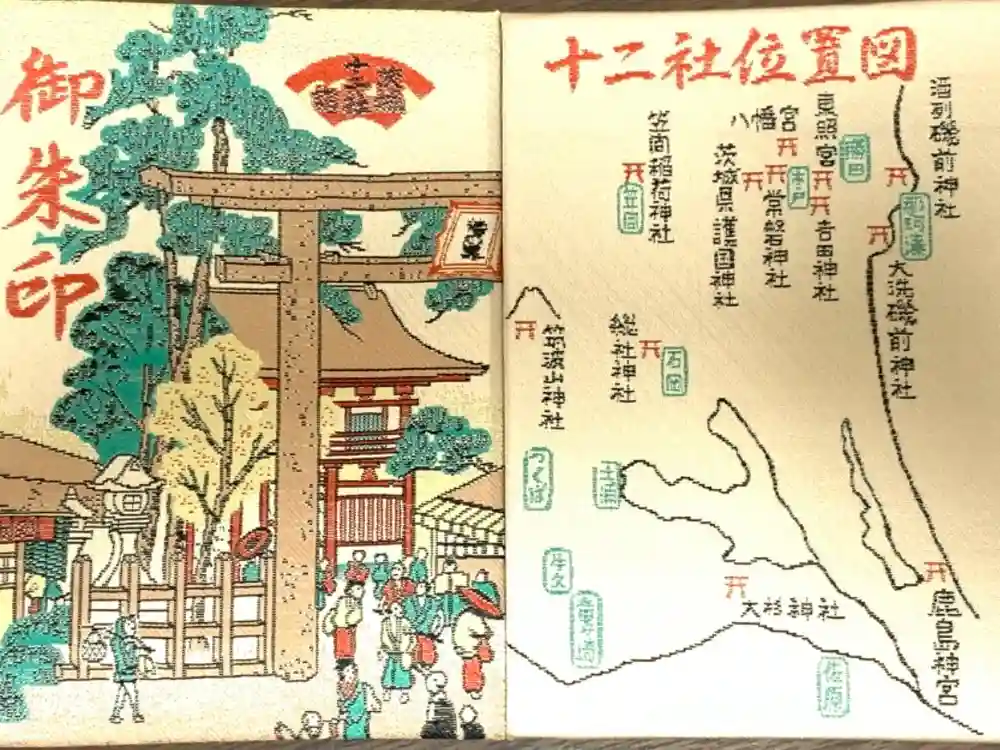 御朱印
十二社
十二社位置図
酒列磯前神社
東照宮
八幡宮
笠間稲荷神社
茨城県護国神社
常磐神社
吉田神社
勝田
水戸
笠間
那珂湊
大洗磯前神社
総社神社
石岡
筑波山神社
つくば
土浦
牛久
竜ヶ崎
大杉神社
鹿島神宮
佐原